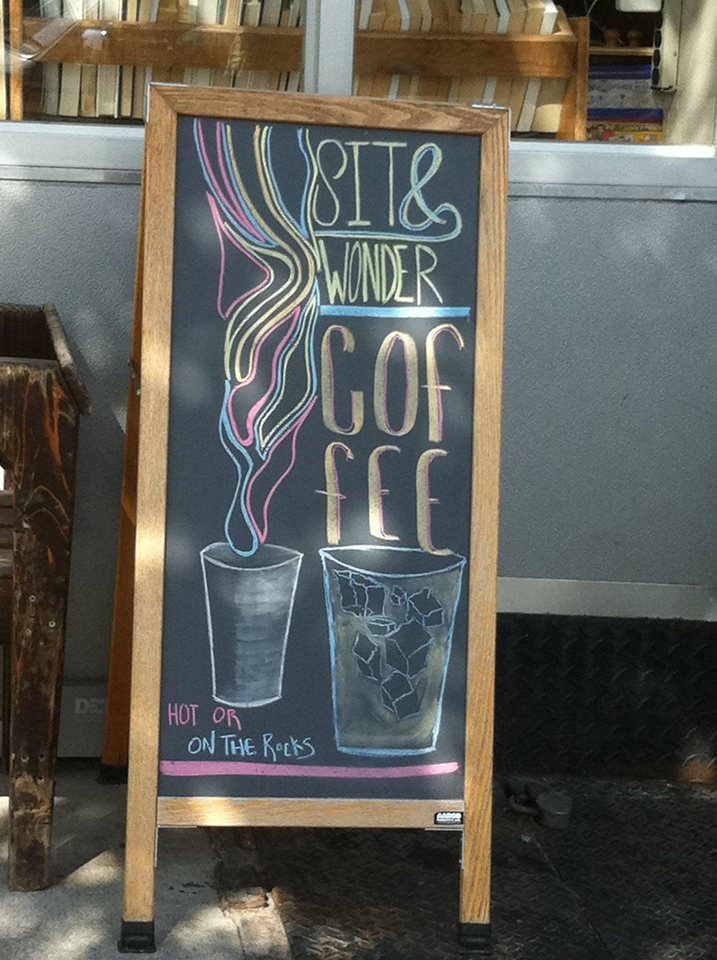 SIT &
WONDER
COF
FEE
HOT OR
ON THE ROCKS
AARCO